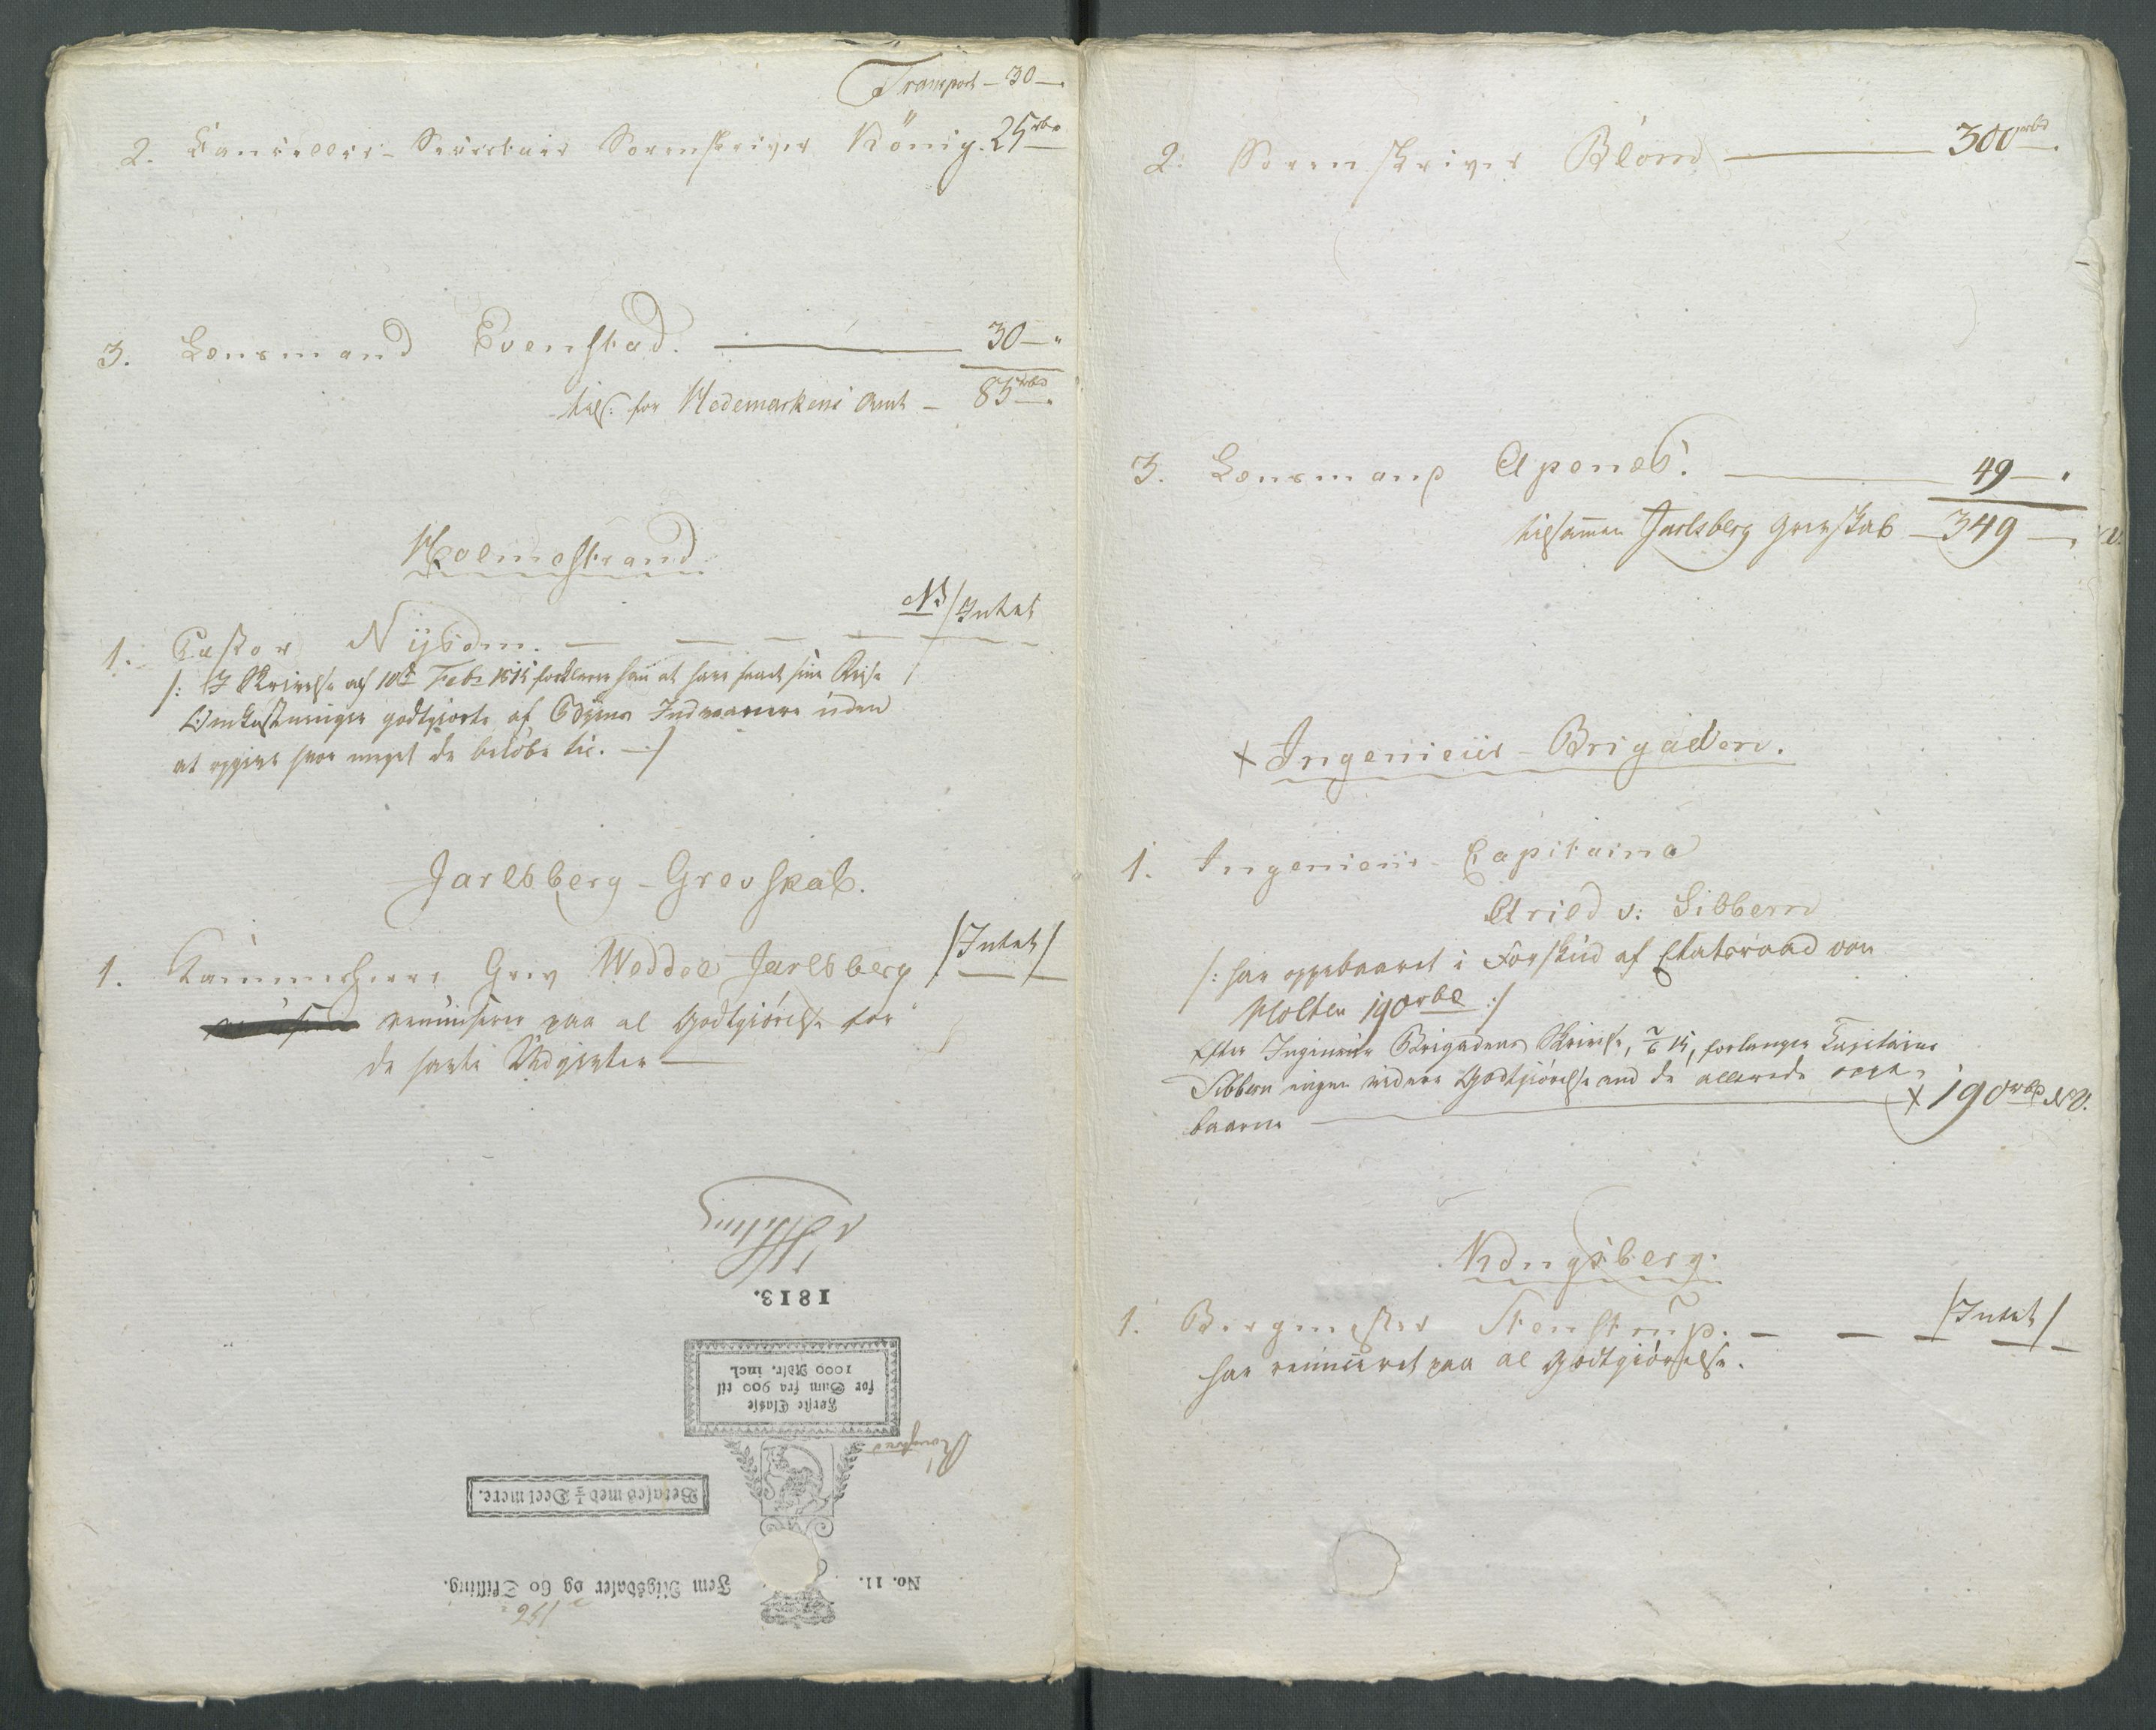 Transport – 30 –
2. Cancellie-Secretair Sorenskriver König. 25 rbd
3. Lensmand Evenstad. 30 –
tils: for Hedemarkens Amt – 85 rbd
Holmestrand
NB /Intet
1. Pastor Nÿsom.
/: I Skrivelse af 10de Febr 1815 forklarer han at have faaet sine Reise
Omkostninger godtgiorte af Byens Indvaanere uden
at opgive hvor meget de beløbe til. –:/
Jarlsberg-Grevskab.
1. Kammerherre Grev Weddel Jarlsberg /Intet/
renuncerer paa al Godtgiörelse for
de havte Udgivter
1813.
Første Classe
for Sum fra 900 til
1000 Rdlr. incl.
Betales med ½ Deel mere.
No. 11. Fem Rigsdaler og 60 Skilling.
2. Sorenskriver Blom 300 rbd
3. Lensmand Apenes. 49 –
tilsammen Jarlsberg Grevskab – 349 –
x Ingenieur-Brigaden.
1. Ingenieur-Capitaine
Arild v: Sibbern
/: har oppebaaret i Forskud af Etatsraad von
Holten 190 rbd :/
Efter Ingenieur Brigadens Skrivelse, 15, forlanger Capitaine
Sibbern ingen videre Godtgiörelse end de allerede oppe-
baarne x 190 rbd NV.
Kongsberg.
1. Bergmester Stenstrup. – – /Intet/
har renunceret paa al Godtgiörelse.